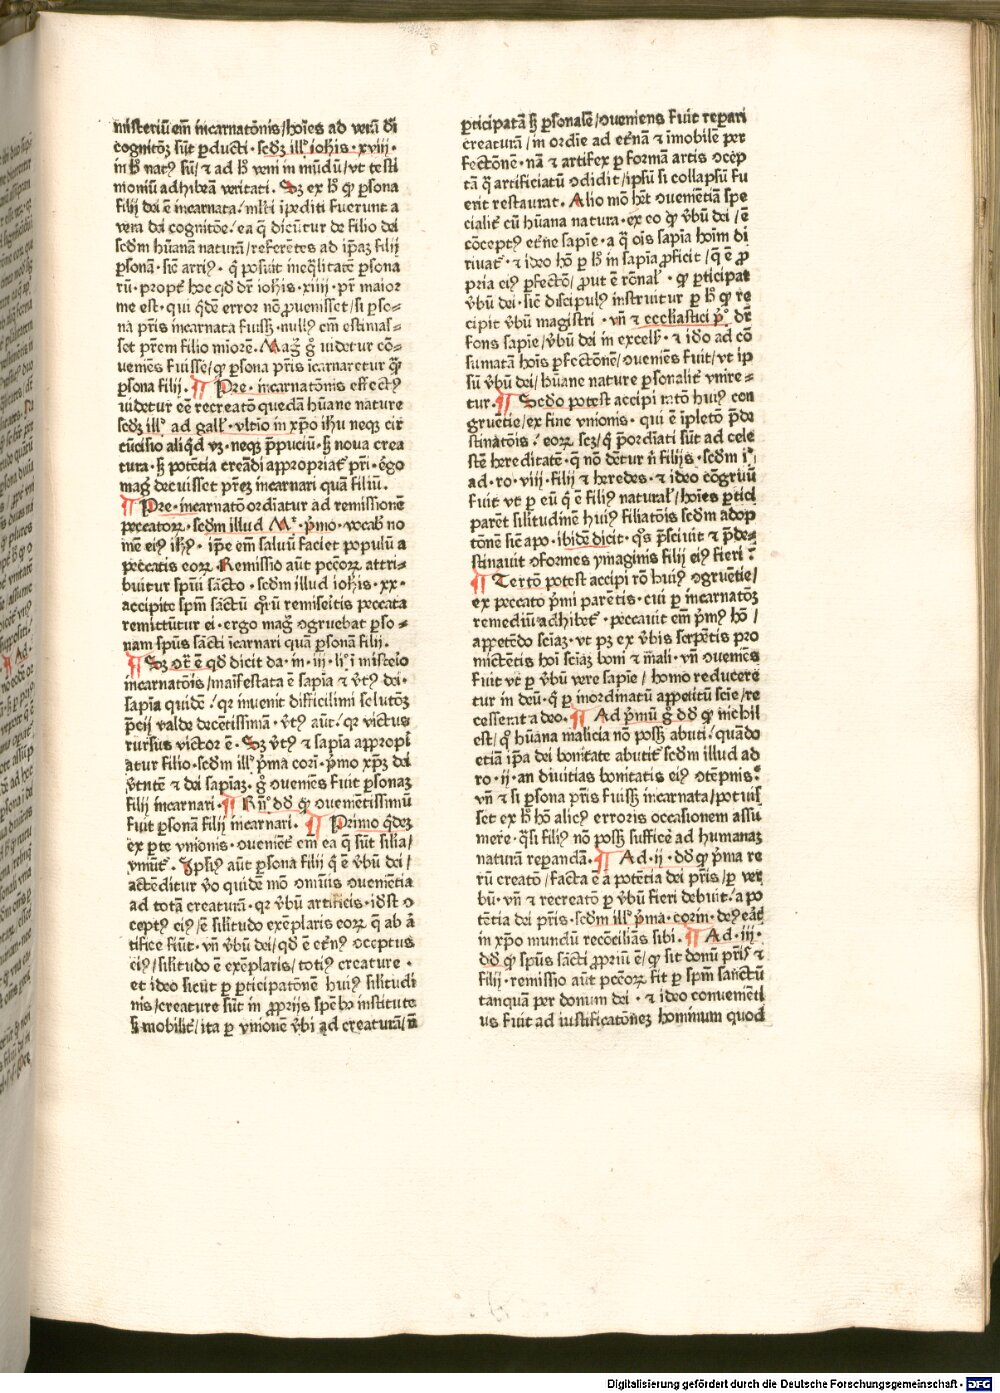 misteriū em̄ incarnatōnis/hoīes ad verā di
cognitōꝫ sūt ꝑducti·scd̄ꝫ illˀ ioh̄is·xviii·
in h̄ natꝰ sū/ ⁊ ad h̄ veni in mūdū/vt testi
moniū adhibeā veritati. Sꝫ ex h̄ ꝙ ꝑsona
filij dei ē incarnata/mlti īpediti fuerunt a
vera dei cognitōe/ea q̄ dicūtur de filio dei
scd̄m hūanā naturā/referētes ad ip̄aꝫ filij
ꝑsonā·sic̄ arriꝰ·q̄ posuit ineq̄litatē ꝑsona
rū·propt̄ hoc qd̄ dr̄ ioh̄is·xiiii·pr̄ maior
me est·qui q̄dē error nō ꝓuenisset/si ꝑso⸗
na pr̄is incarnata fuisꝫ·nullꝰ em̄ estimas⸗
set pr̄em filio miorē. Maḡ g̊ uidetur cō⸗
ueniēs fuisse/ꝙ ꝑsona pr̄is icarnaretur q̄ꝫ
ꝑsona filij. ¶ Pre·incarnatōnis effectꝰ
uidetur eē recreatō quedā hūane nature
scd̄ꝫ illˀ ad gallˀ·vltio in xp̄o ih̄u neqꝫ cir
cūcisio aliq̄d vꝫ·neqꝫ p̄puciū·ꝫ noua crea
tura·ꝫ potētia creādi appropriat̄ pr̄i·ēgo
maḡ decuisset pr̄eꝫ incarnari quā filiū.
¶ Pre·incarnatō ordiatur ad remissionē
peccatoꝝ·scd̄m illud Mˀ·p̄mo·vocab̄ no
mē eiꝰ ih̄s·ip̄e em̄ saluū faciet populū a
peccatis eoꝝ. Remissio aūt pecc̄oꝝ attri⸗
buitur sp̄ui sācto·scd̄m illud ioh̄is·xx·
accipite sp̄m sāctū qr̄ū remiseitis peccata
remittūtur ei·ergo maḡ ꝯgruebat ꝑso⸗
nam sp̄us sācti īcarnari quā ꝑsonā filij.
¶ Sꝫ ꝯt̄ ē qd̄ dicit da·in·iij·liˀ ī misteio
incarnatōis/maīfestata ē sapīa ⁊ v̄tꝰ dei·
sapīa quidē/qr inuenit difficilimi solutōꝫ
p̄cij valde decētissimā·v̄tꝰ aūt/qr victus
rursus victor ē. Sꝫ v̄tꝰ ⁊ sapīa appropi
atur filio·scd̄m illˀ p̄ma cori·p̄mo xp̄ꝫ dei
v̄tutē ⁊ dei sapiaꝫ·g̊ ꝯueniēs fuit ꝑsonaꝫ
filij incarnari. ¶ Rn̄ˀ dd̄ ꝙ ꝯueniētissimū
fuit ꝑsonā filij incarnari. ¶ Primo q̄deꝫ
ex ꝑte vnionis·ꝯueniēt̄ em̄ ea q̄ sūt silia/
vniūt̄. Ipsiꝰ aūt ꝑsona filij q̄ ē v̄bū dei/
actēditur v̄o quidē mō omūis ꝯueniētia
ad totā creaturā·qꝛ v̄bū artificis·idst ꝯ
ceptꝰ eiꝰ/ē silitudo exēplaris eoꝝ q̄ ab ā
tifice fiūt·vn̄ v̄bū dei/qd̄ ē et̄nꝰ ꝯceptus
eiꝰ/silitudo ē exēplaris/totiꝰ creature·
et ideo sicut ꝑ ꝑticipatōnē huiꝰ silitudi
nis/creature sūt in ꝓprijs spēbꝫ institute
ꝫ mobilit̄/ita ꝑ vnionē v̄bi ad creaturā/n̄
ꝑticipatā ꝫ ꝑsonalē/ꝯueniens fuit repari
creaturā/in ordie ad et̄nā ⁊ imobilē per
fectōnē·nā ⁊ artifex ꝑ formā artis ꝯcep
tā q̄ artificiatū ꝯdidit/ipsū si collapsū fu
erit restaurat. Alio mō h̄et ꝯueniētiā spe
cialit̄ cū hūana natura·ex eo ꝙ v̄bū dei/ē
cōceptꝰ et̄ne sapie·a q̄ oīs sapīa hoīm di
riuat̄·⁊ ideo hō ꝑ h̄ in sapia ꝓficit/q̄ ē ꝓ
pria eiꝰ ꝑfectō/ꝓut ē rōnalˀ·ꝙ ꝑticipat
v̄bū dei·sic̄ discipulꝰ instruitur ꝑ h̄ ꝙ re
cipit v̄bū magistri·vn̄ ⁊ ecclīastici pˀ dr̄
fons sapie/v̄bū dei in excelsˀ·⁊ ido ad cō
sumatā hoīs ꝑfectōnē/ꝯueniēs fuit/vt ip
sū v̄bū dei/hūane nature ꝑsonalit̄ vnire⸗
tur. ¶ Scd̄o potest accipi ratō huiꝰ con
gruētie/ex fine vnionis·qui ē īpletō p̄de
stinatōis/eoꝝ scꝫ/q̄ p̄ordīati sūt ad cele
stē hereditatē·q̄ nō detur n̄ filijs·scd̄m iˀ
ad·ro·viii·filij ⁊ heredes·⁊ ideo cōgruū
fuit vt ꝑ eū q̄ ē filiꝰ naturalˀ/hoīes ꝑtici
parēt silitudinē huiꝰ filiatōis scd̄m adop
tōnē sic̄ apo·ibidē dicit·q̄s p̄sciuit ⁊ p̄de⸗
stinauit ꝯformes ymaginis filij eiꝰ fieri·
¶ Tertō potest accipi rō huiꝰ ꝯgruētie/
ex peccato p̄mi parētis·cui ꝑ incarnatōꝫ
remediū adhibet̄·peccauit em̄ p̄mꝰ hō/
appetēdo sciaꝫ·vt pꝫ ex v̄bis serpētis pro
mictētis hoī sciaꝫ boni ⁊ mali·vn̄ ꝯueniēs
fuit vt ꝑ v̄bū vere sapie/homo reducere
tur in deū·q̄ ꝑ inordinatū appetitū scie/re
cesserat a deo. ¶ Ad p̄mū g̊ dd̄ ꝙ nichil
est/q̊ hūana malicia nō possꝫ abuti/quādo
etiā ip̄a dei bonitate abutit̄ scd̄m illud ad
ro·ii·an diuitias bonitatis eiꝰ ꝯtēpnis·
vn̄ ⁊ si ꝑsona pr̄is fuissꝫ incarnata/potuis
set ex h̄ hō alicꝰ erroris occasionem assu
mere·q̄si filiꝰ nō possꝫ sufficē ad humanaꝫ
naturā reꝑandā. ¶ Ad·ij·dd̄ ꝙ p̄ma re
rū creatō/facta ē a potētia dei pr̄is/ꝑ ver
bū·vn̄ ⁊ recreatō ꝑ v̄bū fieri debuit/a po
tētia dei pr̄is·scd̄m illˀ p̄ma·corin·deꝰ eāt
in xp̄o mundū recōcilians sibi. ¶ Ad·iij·
dd̄ ꝙ sp̄us sācti ꝓpriū ē/ꝙ sit donū pr̄is ⁊
filij·remissio aūt pecc̄oꝝ fit ꝑ sp̄m sanctū
tanquā per donum dei·⁊ ideo conuenieti
us fuit ad iustificatōneꝫ hominum quod
Digitalisierung gefördert durch die Deutsche Forschungsgemeinschaft - DFG